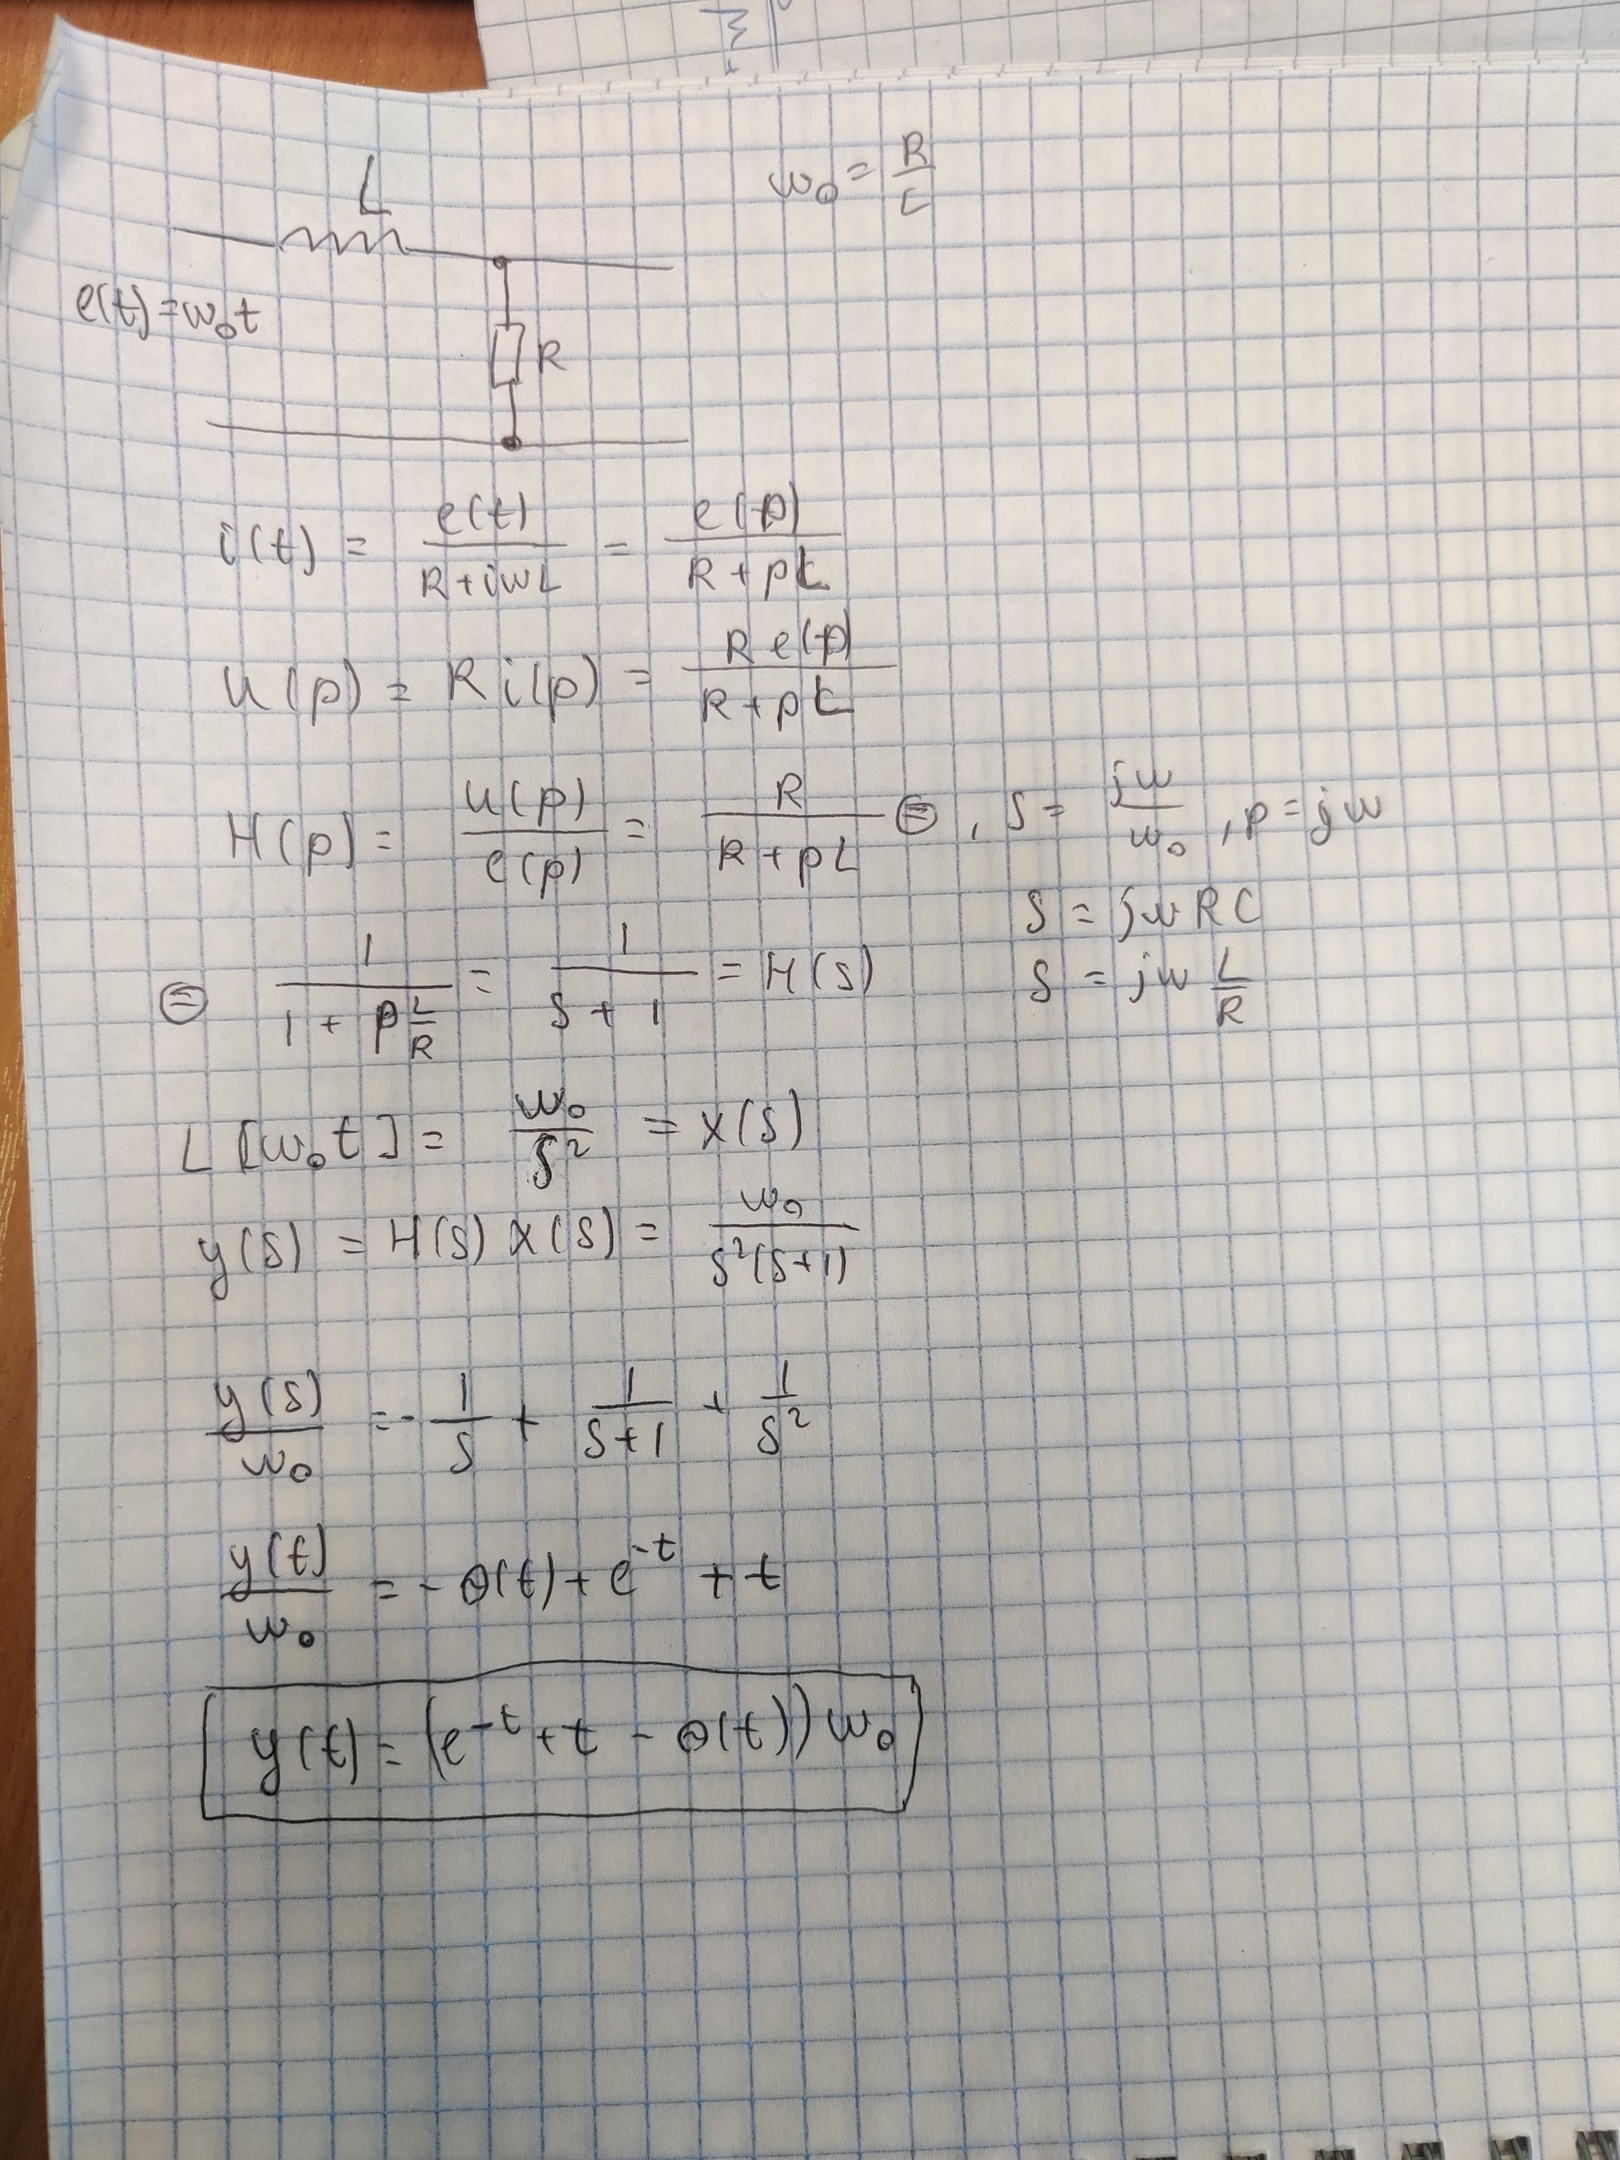 L
ω₀ = R/L
e(t) = ω₀t
R
i(t) = e(t)/(R + iωL) = e(p)/(R + pL)
U(p) = R i(p) = R e(p)/(R + pL)
H(p) = U(p)/e(p) = R/(R + pL) ⊜ , S = jω/ω₀ , p = jω
S = jωRC
S = jω L/R
⊜ 1/(1 + p L/R) = 1/(S + 1) = H(S)
L[ω₀t] = ω₀/S² = X(S)
y(S) = H(S) X(S) = ω₀/(S²(S+1))
y(S)/ω₀ = - 1/S + 1/(S+1) + 1/S²
y(t)/ω₀ = - θ(t) + e^(-t) + t
y(t) = (e^(-t) + t - θ(t)) ω₀